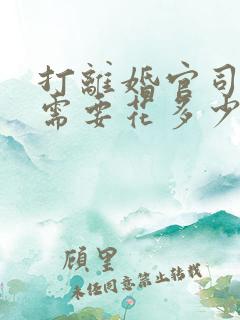 打離婚官司
需要花多少
顧里
未経同意禁止转载